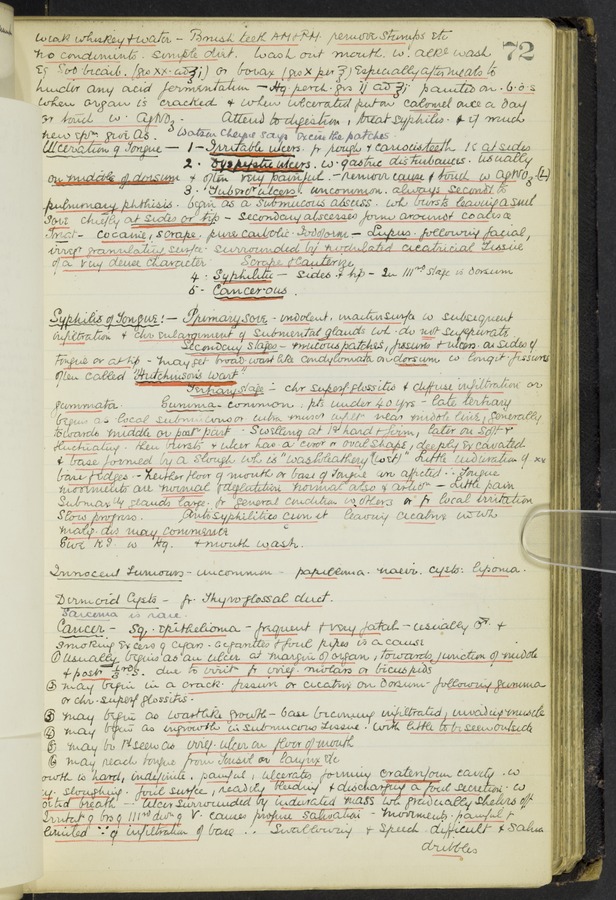 weak whiskey & water - Brush teeth AM & PM. remove stumps etc
72
no condiments. simple diet. Wash out mouth. w. alk. wash
or borax (grs x per ℥) especially after meals to
hinder any acid fermentation - Hg perch. grs ij ad ℥j painted on
when organ is cracked & when ulcerated put on calomel once a day
or touch w. AgNO3. Attend to digestion, treat syphilis. & if much
new give As. Watson Cheyne says Excise the patches.
Ulceration of Tongue - 1 - Irritable ulcers. fr rough & carious teeth at sides
2. Dyspeptic ulcers. w. gastric disturbances. usually
on middle of dorsum & often very painful. - remove cause & touch w AgNO3
3. Tuberc. ulcers. uncommon. always second. to
pulmonary phthisis. begin as a submucous abscess. wh bursts leaving a small
sore chiefly at sides or tip - secondary abscesses form around & coalesce
Treat - cocaine, scrape, pure carbolic. Iodoform - Lupus. following facial,
irreg granulating surface surrounded by nodulated cicatricial tissue
of a very dense character. Scrape & cauterize
4. Syphilitic - sides & tip - in IIIry stage is dorsum
5 - Cancerous.
Syphilis of Tongue: - Primary sore - indolent, inactive surface w subsequent
infiltration & chr enlargement of submental glands wh. do not suppurate
Secondary stages - mucous patches, fissures & ulcers on sides of
tongue or at tip - may get broad wart like condylomata on dorsum w longit. fissures
often called "Hutchinson's wart"
Tertiary stage - chr superf glossitis & diffuse infiltration or
gummata. Gumma - common. pts under 40 yrs - late tertiary
begins as local submucous or intra muscr infilt near middle line, generally
towards middle or post part. Swelling at 1st hard & firm, later on soft &
fluctuating. then bursts & ulcer has a circr or oval shape, deeply excavated
& base formed by a slough wh is "washleathery (wet)" Little induration of
base & edges - Neither floor of mouth or base of tongue are affected ∴ tongue
movements are normal & deglutition normal also & artic - Little pain
Submaxly glands large fr general condition w others or fr local irritation
Slow progress. Antisyphilitics cure it leaving cicatrix in wh
malig. dis may commence
Give KI w Hg. & mouth wash.
Innocent Tumours - uncommon - papilloma. naevi. cysts. lipoma.
Dermoid Cysts - fr Thyroglossal duct.
Sarcoma is rare.
Cancer - Sq. epithelioma - frequent & very fatal - usually ♂. &
smoking excess of cigars. cigarettes & foul pipes is a cause
① usually begins as an ulcer at margin of organ, towards junction of middle
& post 3rds. due to irritn fr irreg. molars or bicuspids
② may begin in a crack fissure or cicatrix on dorsum - following gumma
or chr. superf glossitis.
③ may begin as wartlike growth - base becoming infiltrated, invading muscle
④ may begin as ingrowth in submucous tissue. with little to be seen outside
⑤ may be 1st seen as irreg. ulcer on floor of mouth
⑥ may reach tongue from tonsil or larynx etc
growth is hard, indefinite, painful, ulcerates forming crateriform cavity. w
sloughing. foul surface, readily bleeding & discharging a foul secretion. w
breath - Ulcer surrounded by indurated mass wh gradually shelves off
Irritatn of brs of IIIrd divn of V. causes profuse salivation - movements painful &
limited ∵ of infiltration of base ∴ Swallowing & speech difficult & saliva
dribbles